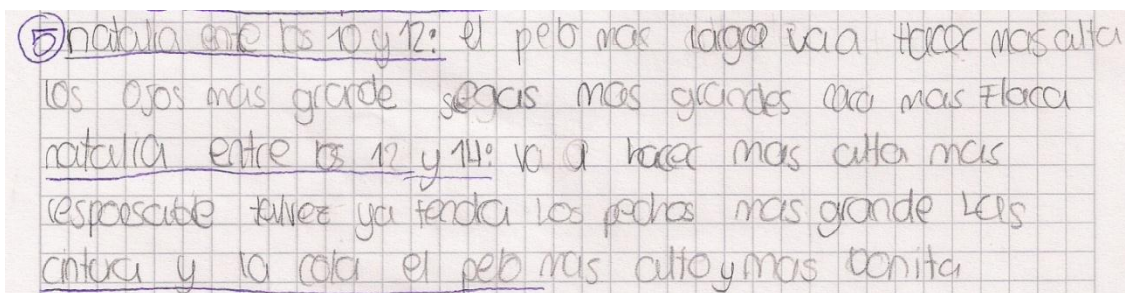 ⑤ natalia ente los 10 y 12: el pelo mas largo va a hacer mas alta
los ojos mas grande segas mas grandes cara mas flaca
natalia entre los 12 y 14: va a hacer mas alta mas
responsable talvez ya tendra los pechos mas grande las
cintura y la cola el pelo mas alto y mas bonita